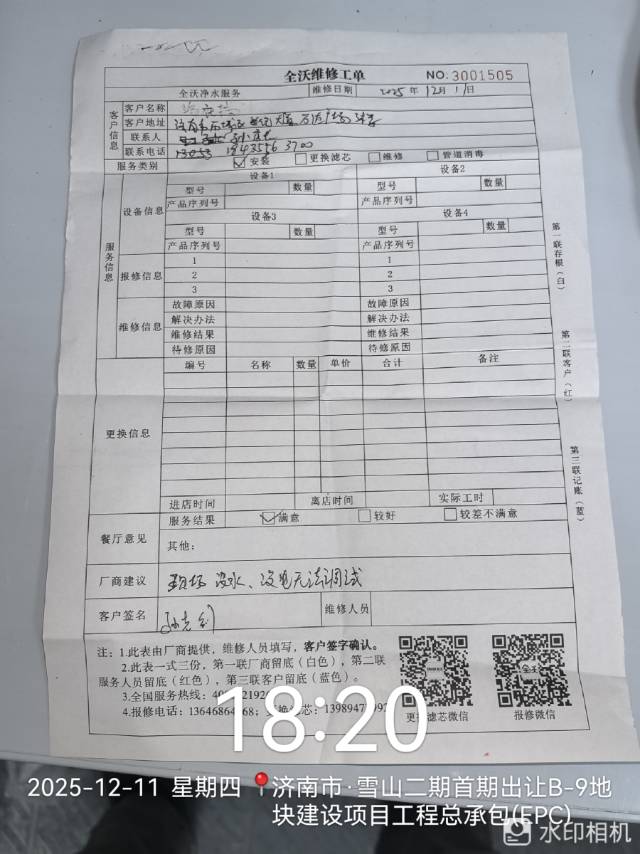 全沃维修工单
NO:3001505
全沃净水服务 维修日期 2025年12月11日
客户信息
客户名称
客户地址
联系人
联系电话 3700
服务类别 ☑安装 □更换滤芯 □维修 □管道消毒
服务信息
设备信息
设备1 设备2
型号 数量 型号 数量
产品序列号 产品序列号
设备3 设备4
型号 数量 型号 数量
产品序列号 产品序列号
报修信息
1 1
2 2
3 3
维修信息
故障原因 故障原因
解决办法 解决办法
维修结果 维修结果
待修原因 待修原因
更换信息
编号 名称 数量 单价 合计 备注
进店时间 离店时间 实际工时
餐厅意见
服务结果 ☑满意 □较好 □较差不满意
其他:
厂商建议 现场没水、没电无法调试
客户签名 维修人员
第一联存根(白)
第二联客户(红)
第三联记账(蓝)
注:1.此表由厂商提供,维修人员填写,客户签字确认。
2.此表一式三份,第一联厂商留底(白色),第二联
服务人员留底(红色),第三联客户留底(蓝色)。
3.全国服务热线:
4.报修电话:
更换滤芯微信 报修微信
全沃
18:20
2025-12-11 星期四 济南市·雪山二期首期出让B-9地
块建设项目工程总承包(EPC)
水印相机